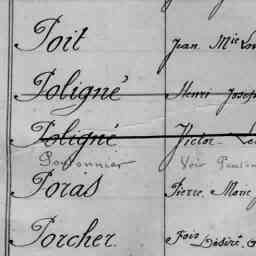 Poit Jean. Mie
Poligné Henri Joseph
Poligné Victor
Poironnier Voir
Poras Pierre. Marie
Porcher. Fois Désiré.